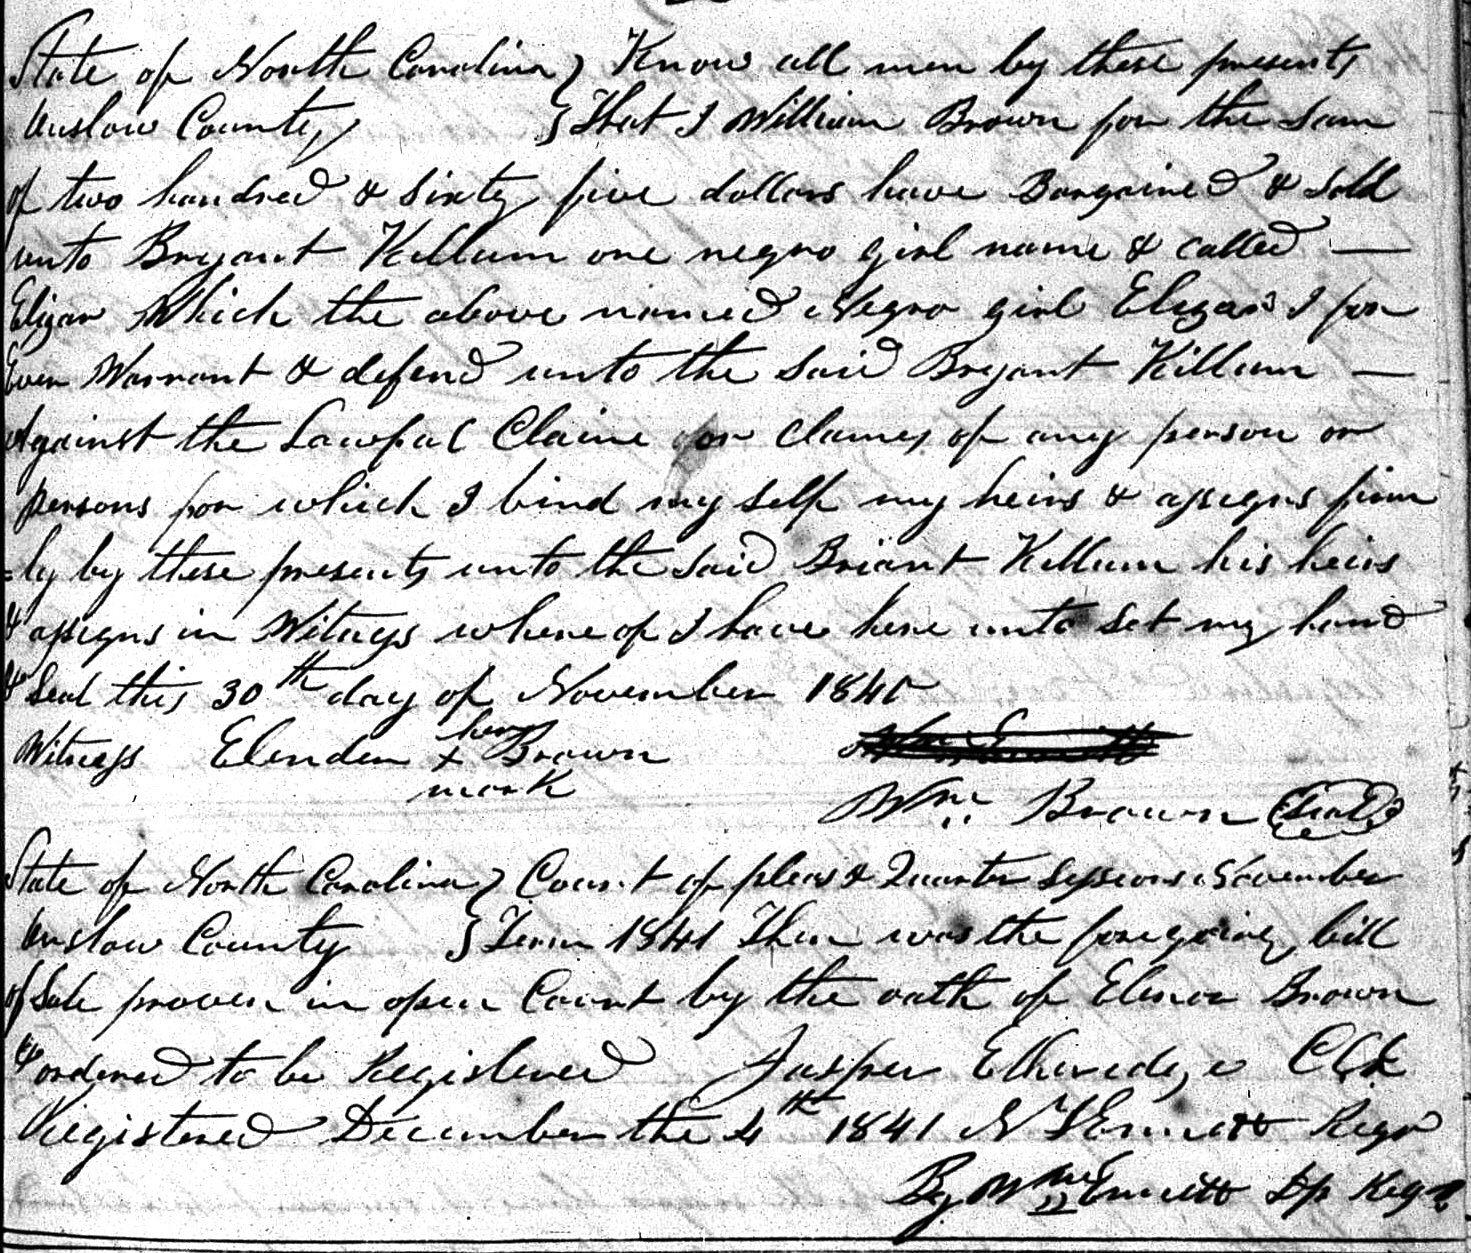 State of North Carolina } Know all men by these presents
Onslow County } That I William Brown for the Sum
of two hundred & Sixty five dollars have Bargained & Sold
unto Bryant Killum one negro girl name & called —
Elizar Which the above named Negro girl Elizar I for
Ever Warrant & defend unto the Said Bryant Killum —
Against the Lawful Claime or Clames of any person or
persons for which I bind my Self my heirs & assigns firm
=ly by these presents unto the Said Briant Killum his heirs
& assigns in Witness where of I have here unto Set my hand
& Seal this 30th day of November
Witness Elender her x mark Brown
Wm Brown (Seal)
State of North Carolina } Court of pleas & Quarter Sessions November
Onslow County } Term 1841 Then was the foregoing bill
of Sale proven in open Court by the oath of Brown
& ordered to be Registered Jasper Etheredge CClk
Registered December the 4th 1841 N Emmett Regr
By Wm Emmett Dp Regr